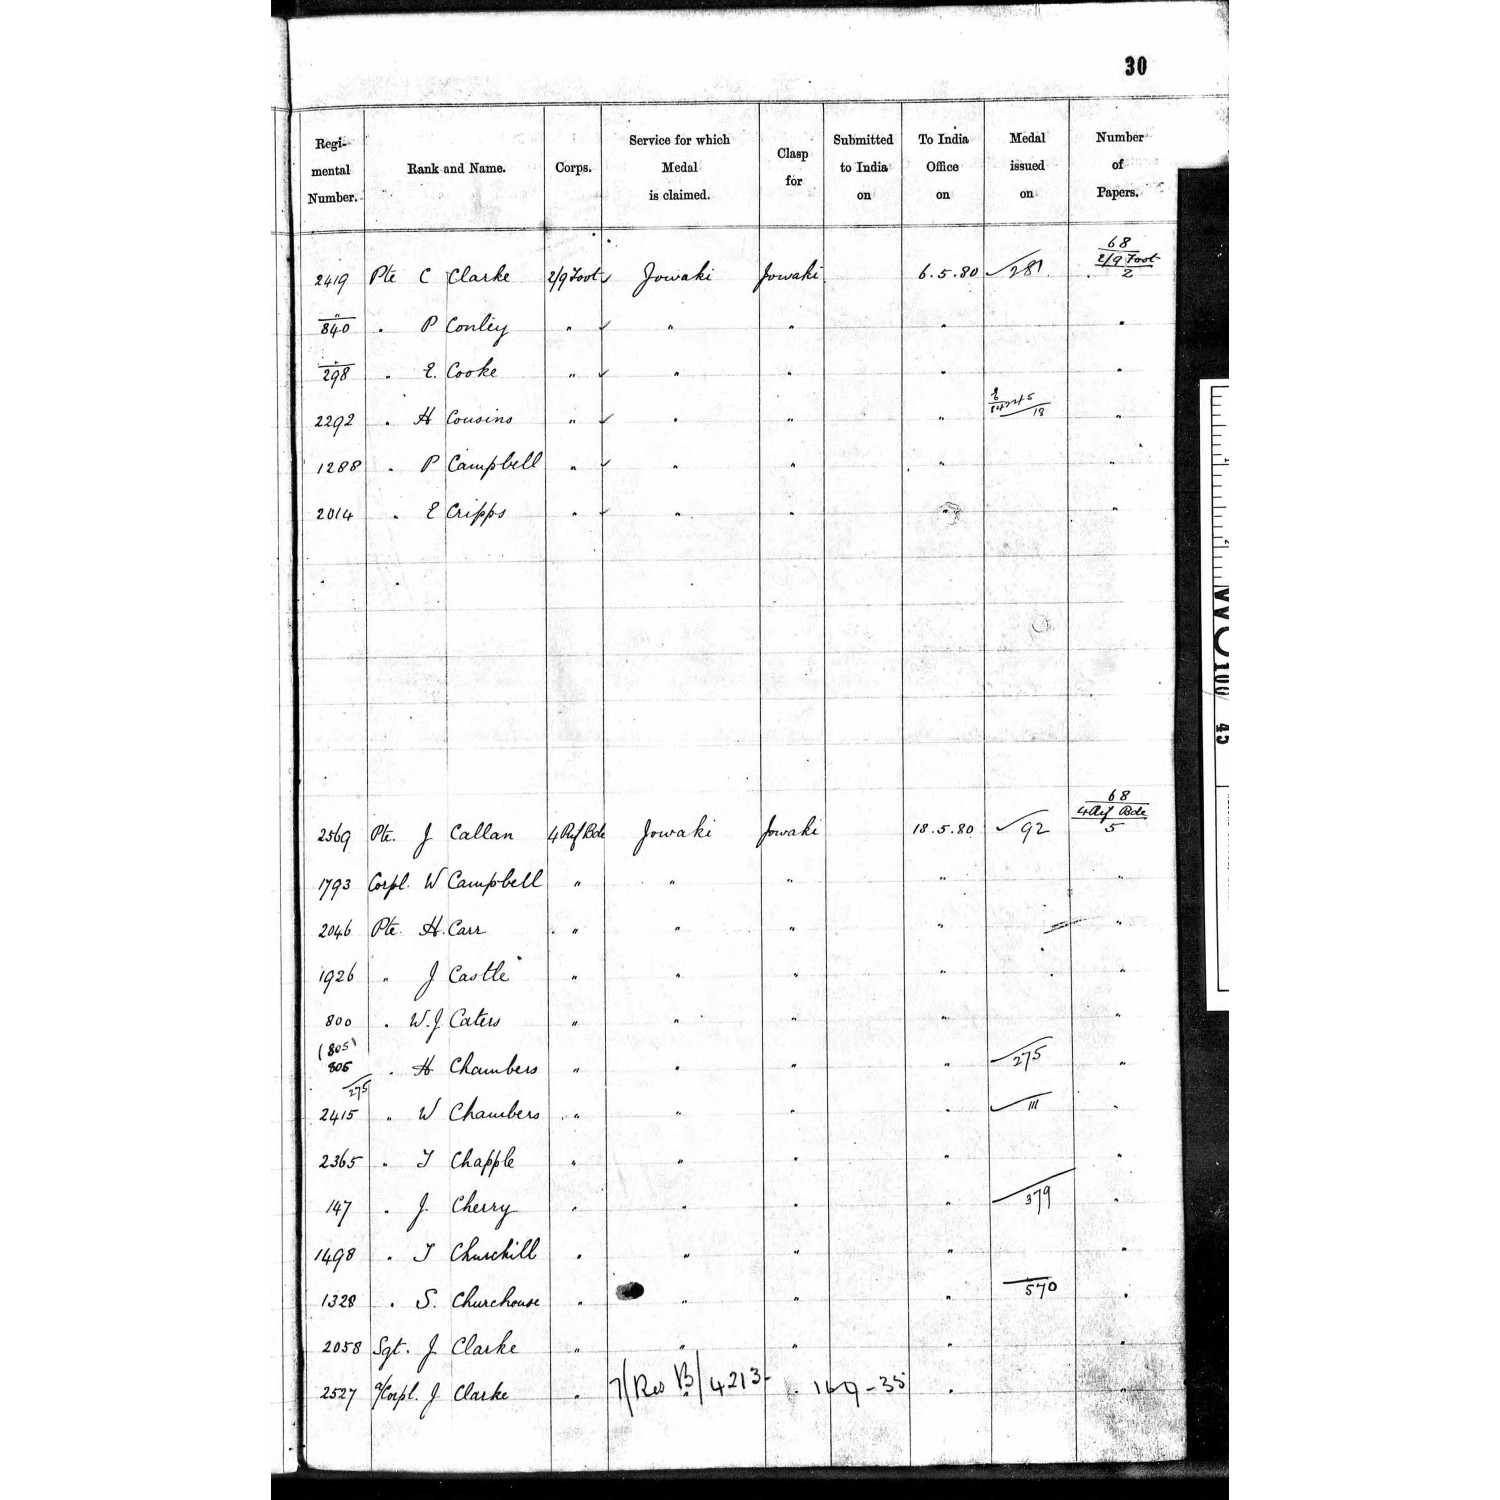 30
Regi-mental Number. Rank and Name. Corps. Service for which Medal is claimed. Clasp for Submitted to India on To India Office on Medal issued on Number of Papers.
68
2419 Pte C Clarke 2/9 Foot ✓ Jowaki Jowaki 6.5.80 281 2/9 Foot
2
"
840 " P Conley " ✓ " " " "
"
298 " E. Cooke " ✓ " " " "
2292 " H Cousins " ✓ " " " 18 "
1288 " P Campbell " ✓ " " " "
2014 " E Cripps " ✓ " " " "
68
2569 Pte. J Callan 4 Rif Bde Jowaki Jowaki 18.5.80 92 4 Rif Bde
5
1793 Corpl. W Campbell " " " " "
2046 Pte. H. Carr " " " " "
1926 " J Castle " " " " "
800 " W.J Caters " " " " "
(805)
805 " H Chambers " " " " 275 "
275
2415 " W Chambers " " " " 111 "
2365 " T Chapple " " " " "
147 " J. Cherry " " " " 379 "
1498 " T Churchill " " " " "
1328 " S. Churchouse " " " " 570 "
2058 Sgt. J Clarke " " " " "
2527 a/Corpl. J Clarke " 7/Res B/4213 " 16-9-35 " "
WO
100/
45